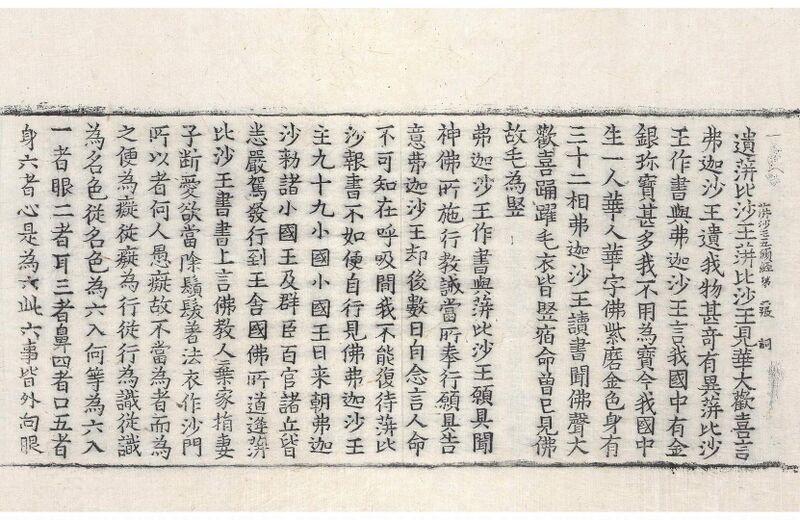 遺蓱比沙王蓱比沙王見華大歡喜言
蓱沙王五願經第 二張 詞
弗迦沙王遺我物甚奇有異蓱比沙
王作書與弗迦沙王言我國中有金
銀珎寶甚多我不用為寶今我國中
生一人華人華字佛紫磨金色身有
三十二相弗迦沙王讀書聞佛聲大
歡喜踊躍毛衣皆竪宿命曾已見佛
故毛為竪
弗迦沙王作書與蓱比沙王願具聞
神佛所施行教誡當所奉行願具告
意弗迦沙王却後數日自念言人命
不可知在呼吸間我不能復待蓱比
沙報書不如便自行見佛弗迦沙王
主九十九小國小國王日来朝弗迦
沙勑諸小國王及群臣百官諸兵皆
悉嚴駕發行到王舍國佛所道逢蓱
比沙王書書上言佛教人棄家捐妻
子断愛欲當除鬚髮著法衣作沙門
所以者何人愚癡故不當為者而為
之便為癡從癡為行從行為識從識
為名色從名色為六入何等為六入
一者眼二者耳三者鼻四者口五者
身六者心是為六此六事皆外向眼